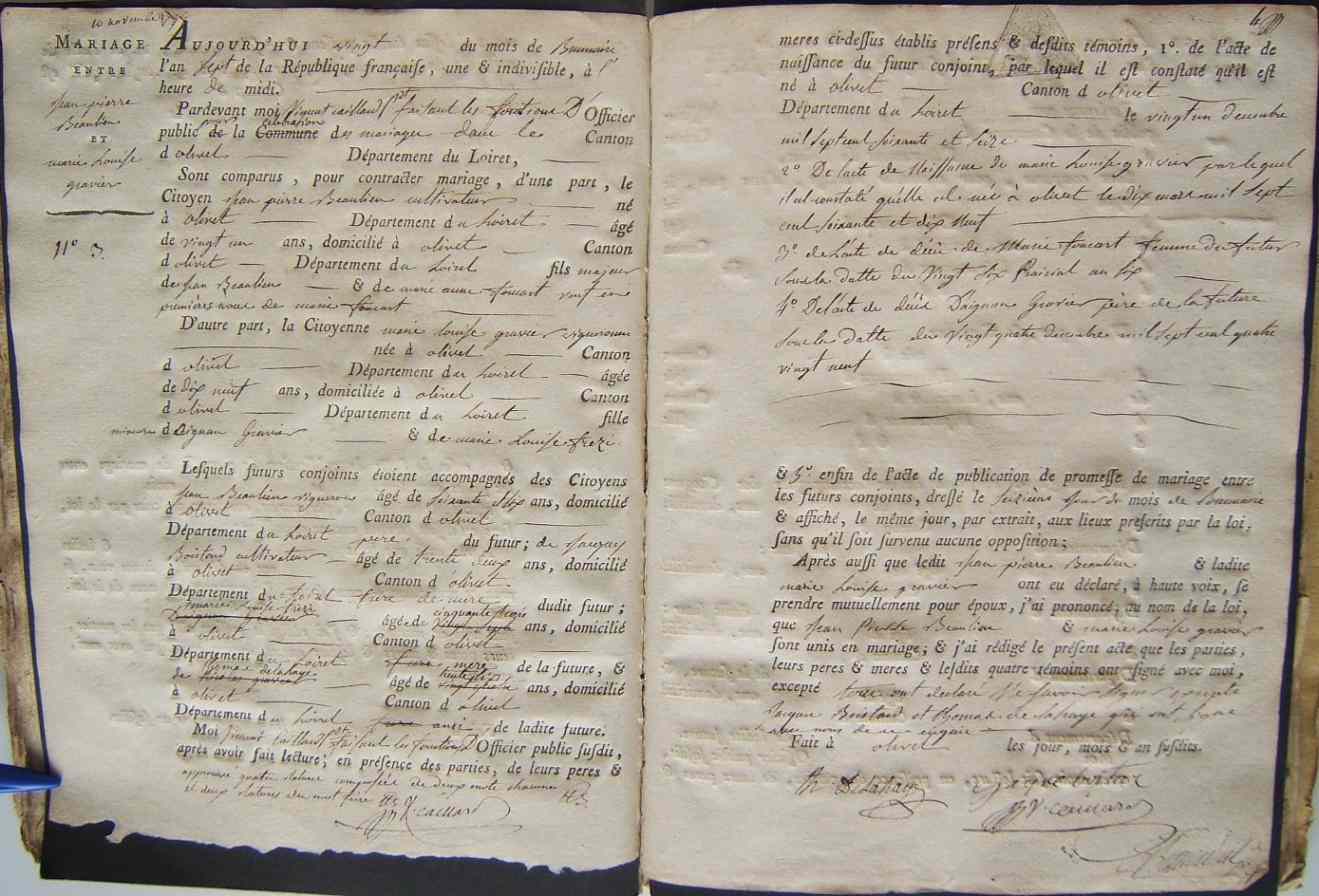 10 novembre
MARIAGE
ENTRE
jean pierre
Beaulieu
ET
marie Louise
gravier
n° 3
AUJOURD'HUI vingt du mois de Brumaire
l'an sept de la République françaife, une & indivifible, à l'
heure de midi.
Pardevant moi caillard faisant les fonctions D'Officier
public de la Commune célébration des mariages dans le Canton
d olivet Département du Loiret,
Sont comparus, pour contracter mariage, d'une part, le
Citoyen jean pierre Beaulieu cultivateur né
à olivet Département du Loiret âgé
de vingt un ans, domicilié à olivet Canton
d olivet Département du Loiret fils majeur
de jean Beaulieu & de marie anne foucart veuf en
premières noces de marie foucart
D'autre part, la Citoyenne marie louise gravier vigneronne
née à olivet Canton
d olivet Département du Loiret âgée
de dix neuf ans, domiciliée à olivet Canton
d olivet Département du Loiret fille
mineure d Aignan Gravier & de marie Louise frezi
Lefquels futurs conjoints étoient accompagnés des Citoyens
jean Beaulieu vigneron âgé de soixante dix ans, domicilié
à olivet Canton d olivet
Département du Loiret pere du futur; de jacques
Boistard cultivateur âgé de trente deux ans, domicilié
à olivet Canton d olivet
Département du Loiret frere de mere dudit futur;
marie louise frezi âgé de cinquante trois ans, domicilié
à olivet Canton d olivet
Département du Loiret mere de la future, &
de thomas delahaye âgé de ans, domicilié
à olivet Canton d olivet
Département du Loiret ami de ladite future.
Moi caillard faisant les fonctions D'Officier public fufdit,
après avoir fait lecture; en préfence des parties, de leurs peres &
approuvé quatre ratures composées de deux mots chacune
et deux ratures du mot frere
caillard
meres ci-deffus établis préfens & defdits témoins, 1°. de l'acte de
naiffance du futur conjoint, par lequel il eft conftaté qu'il eft
né à olivet Canton d olivet
Département du Loiret le vingt un decembre
mil sept cent soixante et seize
2° De l'acte de Naissance de marie Louise gravier par lequel
il est constaté qu'elle est née à olivet le dix mars mil sept
cent soixante et dix Neuf
3° de l'acte de décès de Marie foucart femme du futur
sous la datte du Vingt six Prairial an six
4° De l'acte de décès D'aignan Gravier père de la future
sous la datte du Vingt quatre decembre mil sept cent quatre
vingt neuf
& 5° enfin de l'acte de publication de promeffe de mariage entre
les futurs conjoints, dreffé le seizieme jour du mois de Brumaire
& affiché, le même jour, par extrait, aux lieux prefcrits par la loi,
fans qu'il foit furvenu aucune oppofition;
Après auffi que ledit jean pierre Beaulieu & ladite
marie Louise gravier ont eu déclaré, à haute voix, fe
prendre mutuellement pour époux, j'ai prononcé, au nom de la loi,
que jean Pierre Beaulieu & marie Louise gravier
font unis en mariage; & j'ai rédigé le préfent acte que les parties,
leurs peres & meres & lefdits quatre témoins ont figné avec moi,
excepté tous ont declaré Ne savoir signer excepté
jacques Boistard et thomas de lahaye qui ont signé
avec nous de ce enquis
Fait à olivet les jour, mois & an fufdits.
th Delahaye jacque boitar
caillard